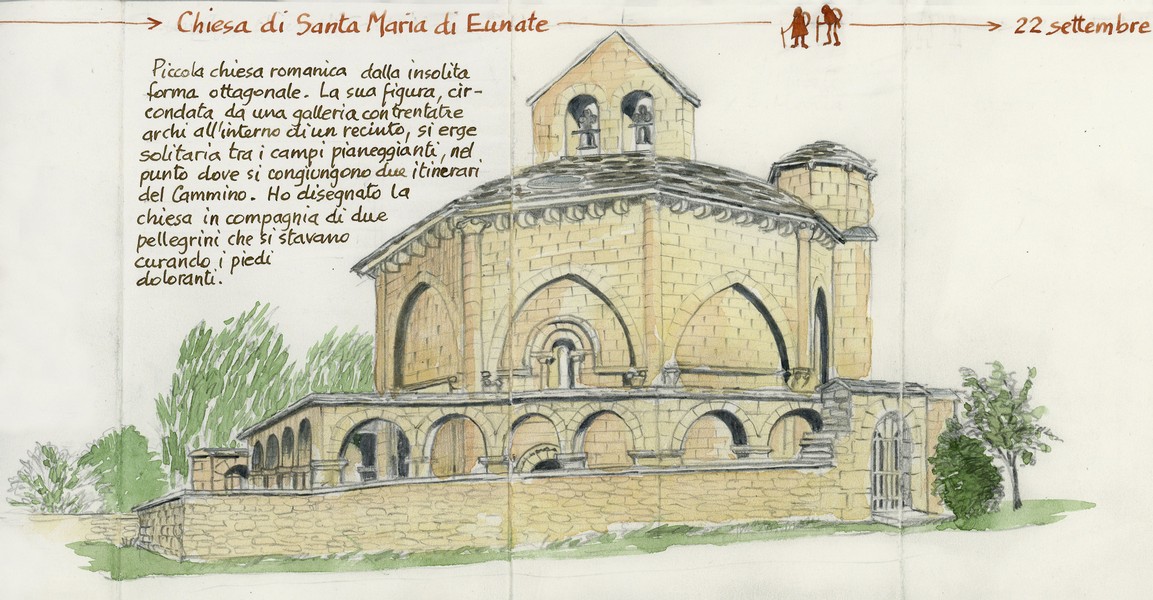 Chiesa di Santa Maria di Eunate
22 settembre
Piccola chiesa romanica dalla insolita
forma ottagonale. La sua figura, cir-
condata da una galleria con trentatre
archi all'interno di un recinto, si erge
solitaria tra i campi pianeggianti, nel
punto dove si congiungono due itinerari
del Cammino. Ho disegnato la
chiesa in compagnia di due
pellegrini che si stavano
curando i piedi
doloranti.